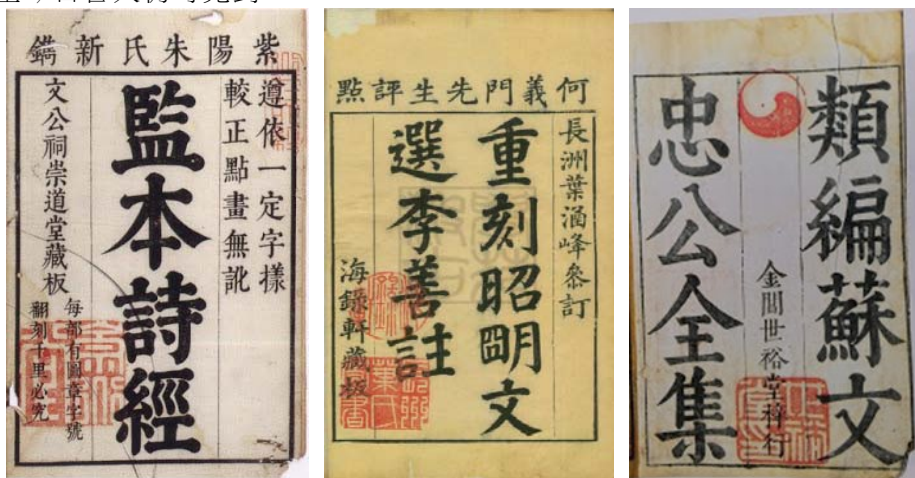 紫陽朱氏新鐫
遵依一定字樣
較正點畫無訛
監本詩經
文公祠崇道堂藏板
每部有圖章字號
翻刻千里必究
何義門先生評點
長洲葉涵峰叅訂
重刻昭朙文
選李善註
海錄軒藏板
類編蘇文
金閶世裕堂梓行
忠公全集